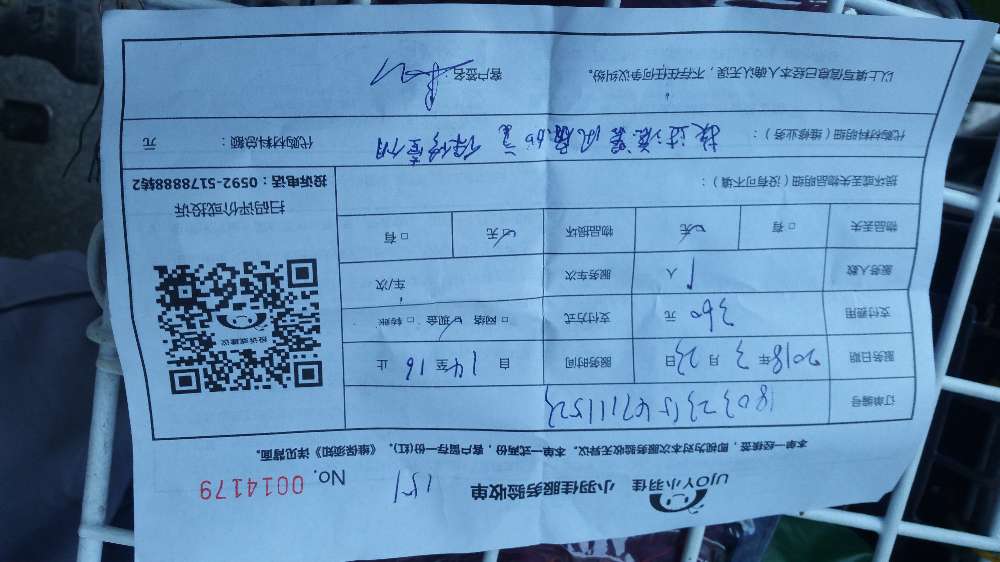 UJOY小羽佳 小羽佳服务验收单 151 No. 0014179
本单一经签接,即视为对本次服务验收无异议。本单一式两份,客户留存一份(红),《维保须知》详见背面。
订单编号
服务日期 2018年3月23日 服务时间 自14至16止
支付费用 360元 支付方式 □网络 ☑现金 □转账
服务人数 1人 服务车次 车/次
物品丢失 □有 ☑无 物品损坏 ☑无 □有
损坏或丢失物品明细(没有可不填):
投诉或建议
扫码评价或投诉
投诉电话:0592-5178888转2
代购材料明细(维修业务): 换过滤器 代购材料总额: 元
以上填写信息已经本人确认无误,不存在任何争议纠纷。 客户签名: